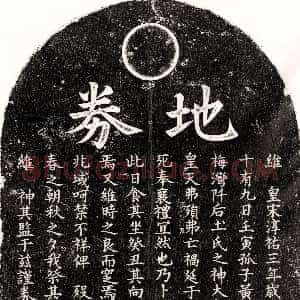 地券
維 皇宋淳祐三年歲
十有九日壬寅孤子黃
梅灣阡后土氏之神大
皇天弗弗亡禍延于
死葬襄禮宜然也乃卜
此日食其坐癸丑其向
焉維時之良而窆焉
兆域呵禁不祥俾 殁
春之朝秋之夕我祭其
維 神其監于茲謹